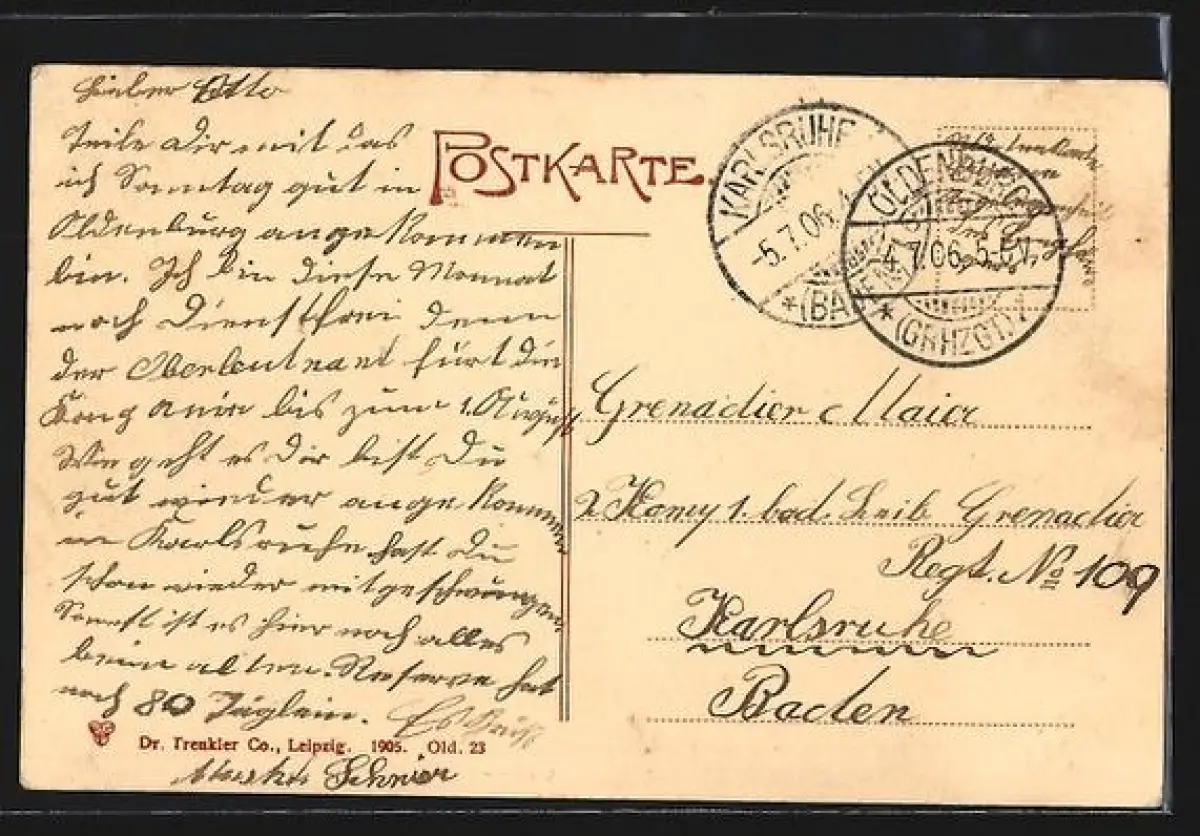 Lieber Otto
Teile Dir mit das
ich Sonntag gut in
Oldenburg angekommen
bin. Ich bin diese Monnat
noch Dienstfrei denn
der Oberleutnant fürt die
Kompanie bis zum 1. August
Wie geht es Dir bist Du
gut wieder angekommen
in Karlsruhe hast Du
schon wieder mitgeschwungen
Sonst ist es hier noch alles
beim alten. Reserve hat
noch 80 Täglein. Es grüßt
Schnier
POSTKARTE.
KARLSRUHE
-5.7.06.
*(BADEN)
OLDENBURG
4.7.06.5-6V.
*(GRHZGT)*
Grenadier Maier
2. Komp 1. bad. Leib Grenadier
Regt. No 109
Karlsruhe
Baden
Dr. Trenkler Co., Leipzig. 1905. Old. 23